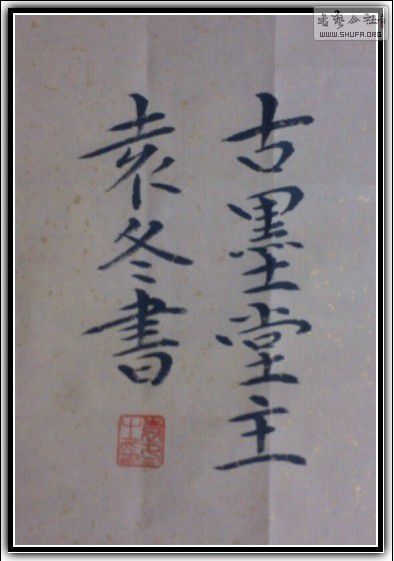 古墨堂主
袁冬書
书艺公社
WWW.SHUFA.ORG